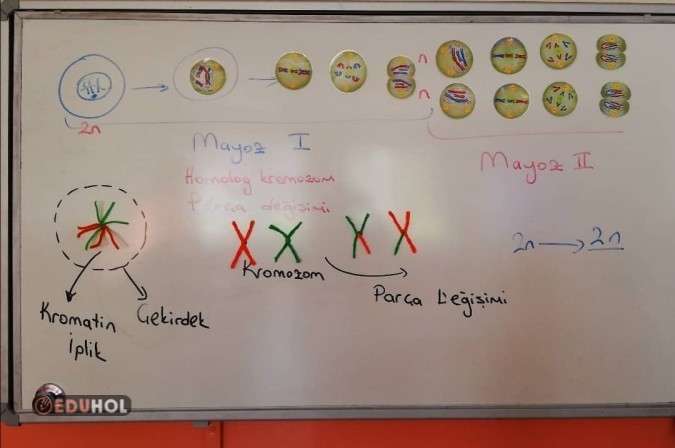 n
n
2n
Mayoz I
Mayoz II
Homolog kromozom
Parça değişimi
2n → 2n
Kromozom
Parça Değişimi
Kromatin
İplik
Çekirdek
EDUHOL